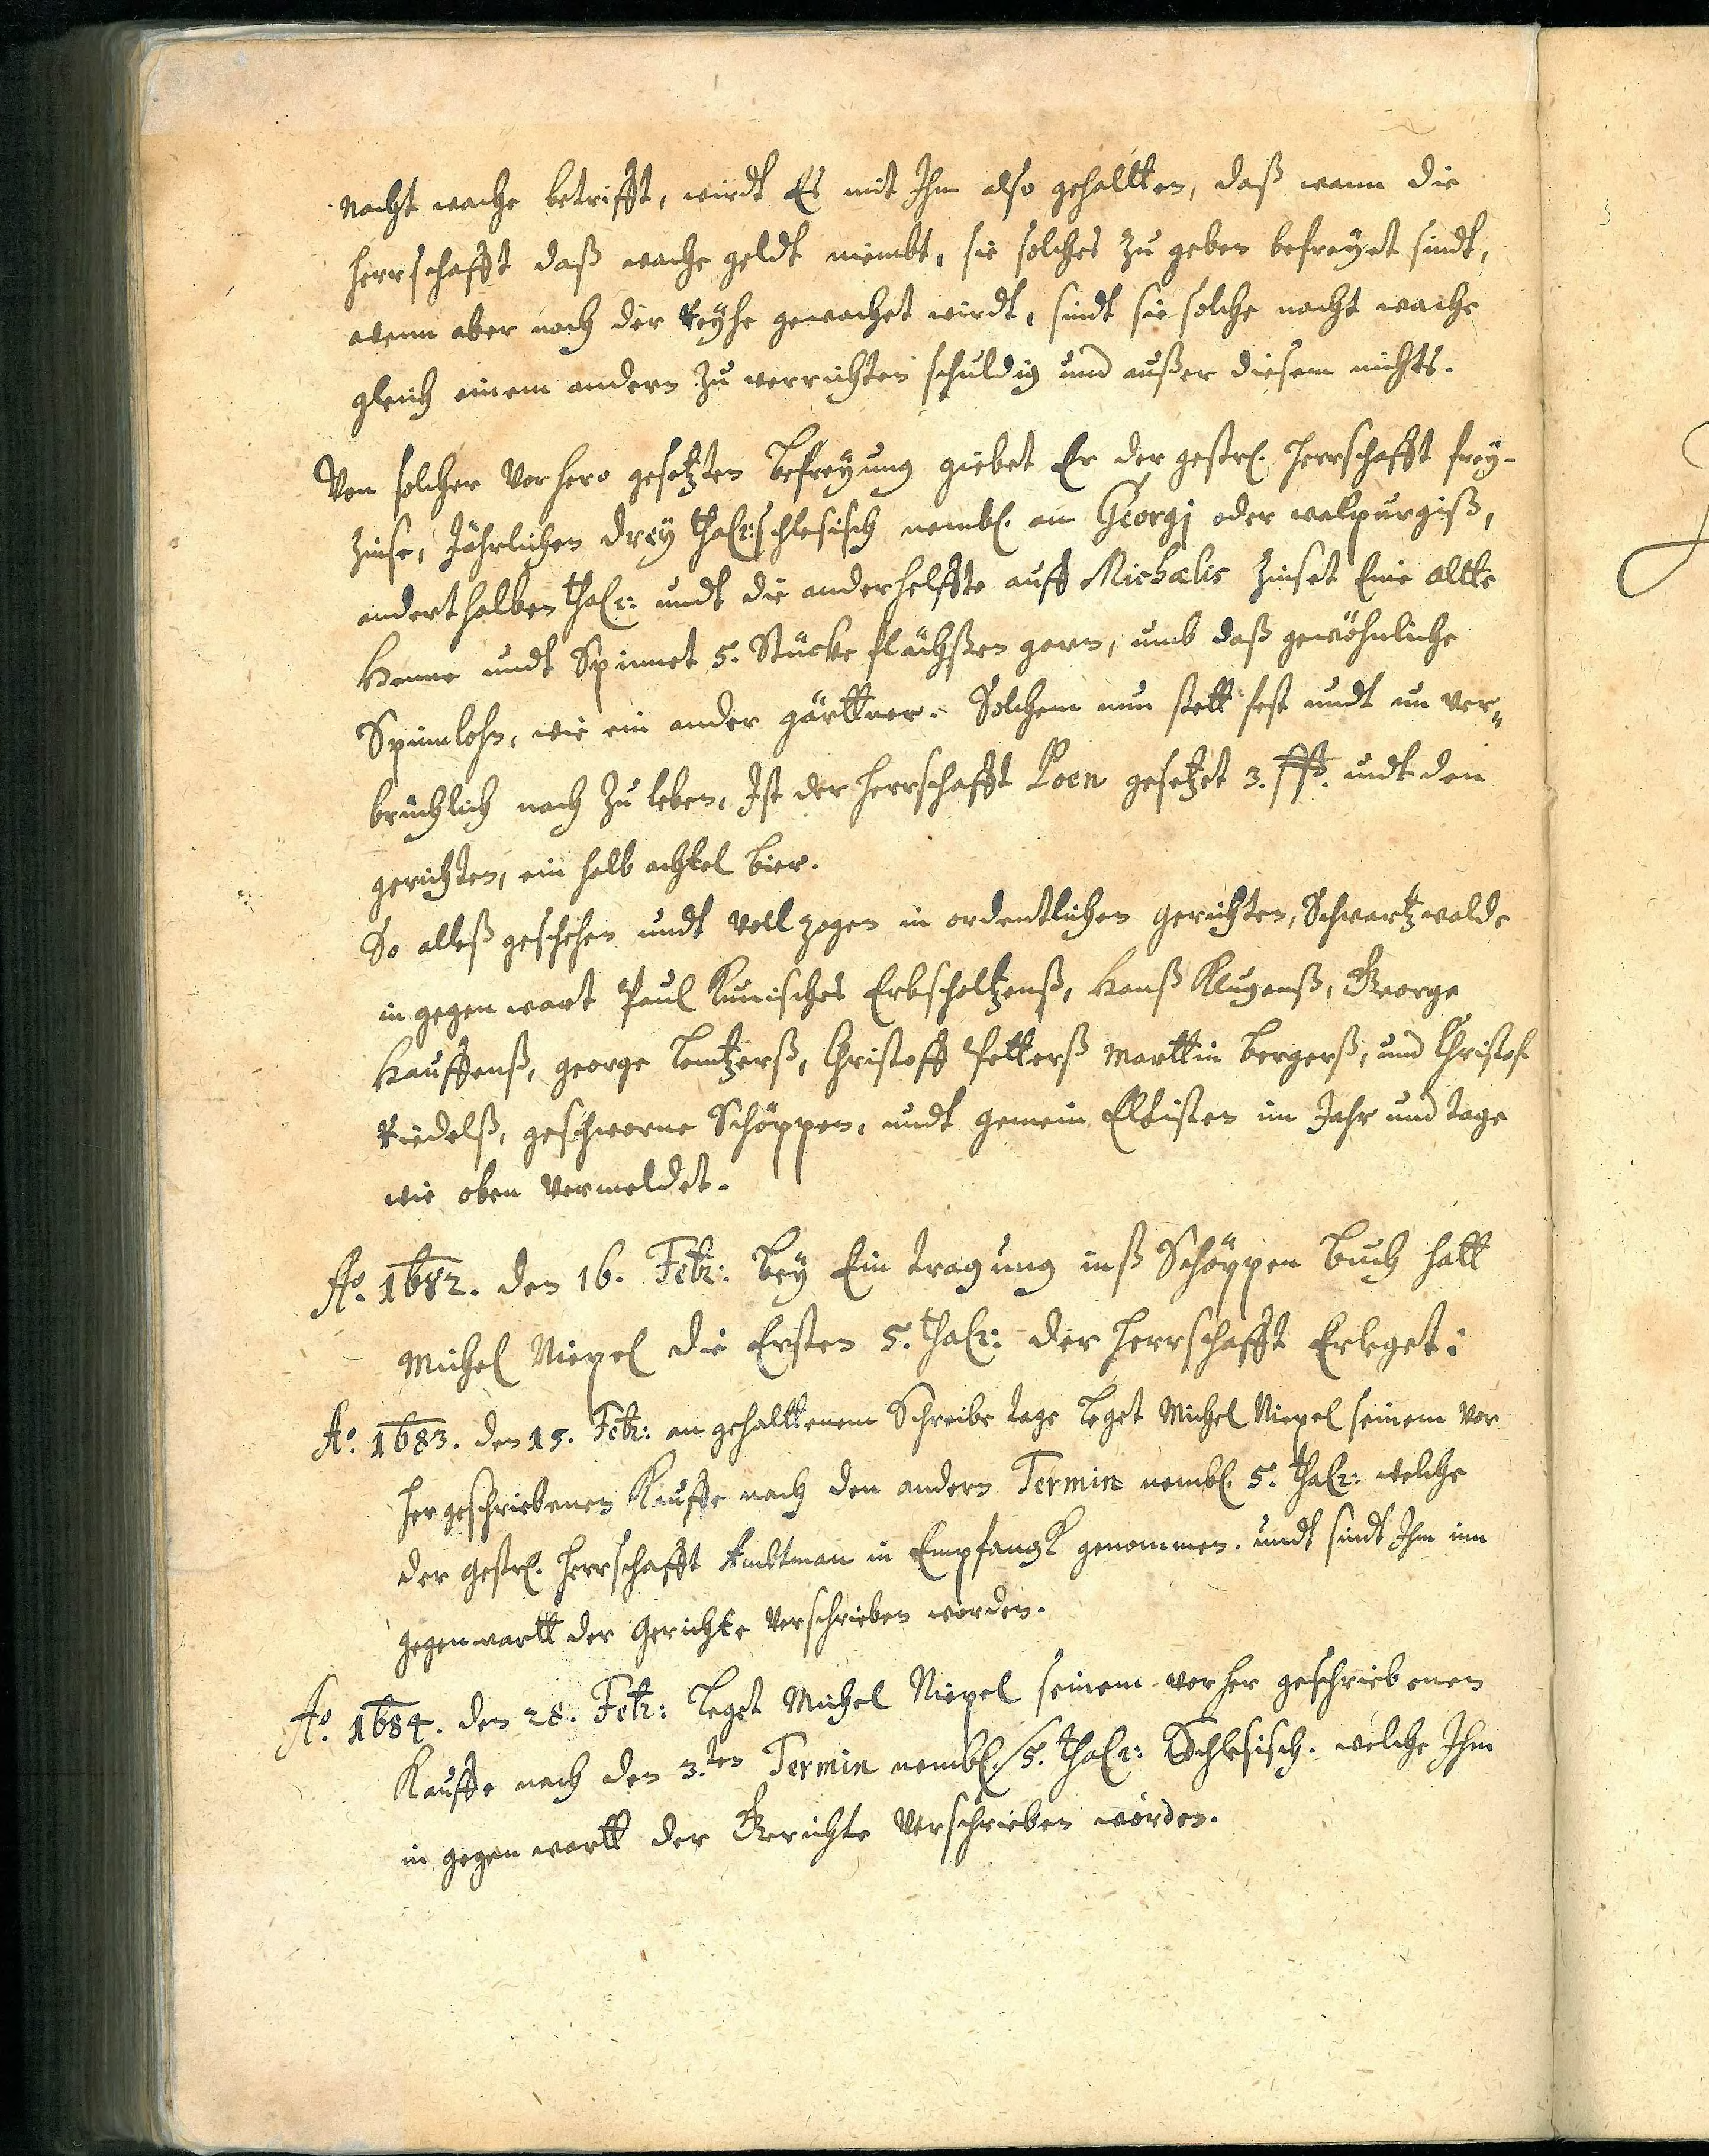 Nacht wache betrifft, wirdt Es mit Ihm also gehaltten, daß wann die
Herrschafft daß wache geldt niembt, sie solches Zu geben befreyet sindt,
wenn aber nach der Reyhe gewachet wirdt, sindt sie solche nacht wache
gleich einem andern Zu verrichten schuldig und außer diesem nichts.
Von solcher Vorhero gesetzten Befreyung giebet Er der gestr. Herrschafft frey-
Zinse, Jährlichen Drey thalr: schlesisch nembl. an Georgj oder walpurgiß,
anderthalben thalr: undt die ander helffte auff Michaelis Zinset Eine altte
Henne undt Spinnet 5. Stücke flächßen garn, umb daß gewöhnliche
Spinnlohn, wie ein ander gärttner. Solchem nun stett fest undt un ver„
brüchlich nach Zu leben, Ist der Herrschafft Poen gesetzet 3. undt den
gerichten, ein halb achtel bier.
So alleß geschehen undt Vollzogen in ordentlichen gerichten, Schwartzwalde
in gegenwart Paul Kunisches Erbscholtzenß, Hanß Klugenß, George
Hauffenß, george Lentzerß, Christoff Petterß Marttin Bergerß, und Christof
Riedelß, geschworne Schöppen, undt gemein Eltisten im Jahr und tage
wie oben Vermeldet.
Ao. 1682. den 16. Febr: Bey Ein tragung inß Schöppen Buch hatt
Michel Niepel die Ersten 5. thalr: der Herrschafft Erleget:
Ao. 1683. den 15. Febr: an gehalttenem Schreibe tage Leget Michel Niepel seinem Vor
her geschriebenen Kauffe nach den andern Termin nembl. 5. thalr: welche
der gestr. Herrschafft Ambtman in Empfangk genommen. undt sindt Ihm inn
gegenwartt der Gerichte Verschrieben worden.
Ao. 1684. den 28. Febr: Leget Michel Niepel seinem vorher geschriebenen
Kauffe nach den 3.ten Termin nembl. 5. thalr: Schlesisch. welche Ihm
in gegenwartt der Gerichte Verschrieben worden.